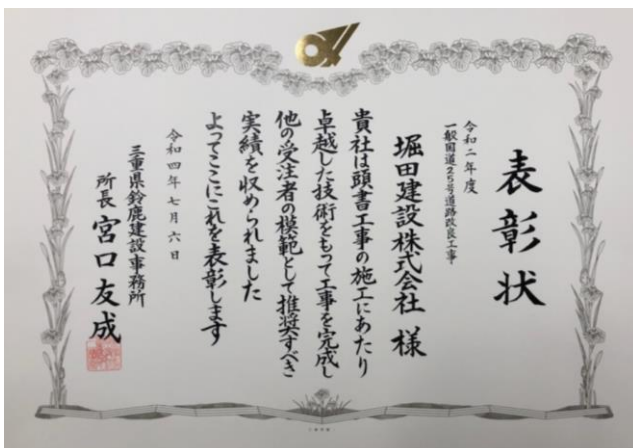 表彰状
令和二年度
一般国道25号道路改良工事
堀田建設株式会社 様
貴社は頭書工事の施工にあたり
卓越した技術をもって工事を完成し
他の受注者の模範として推奨すべき
実績を収められました
よってここにこれを表彰します
令和四年七月六日
三重県鈴鹿建設事務所
所長 宮口友成